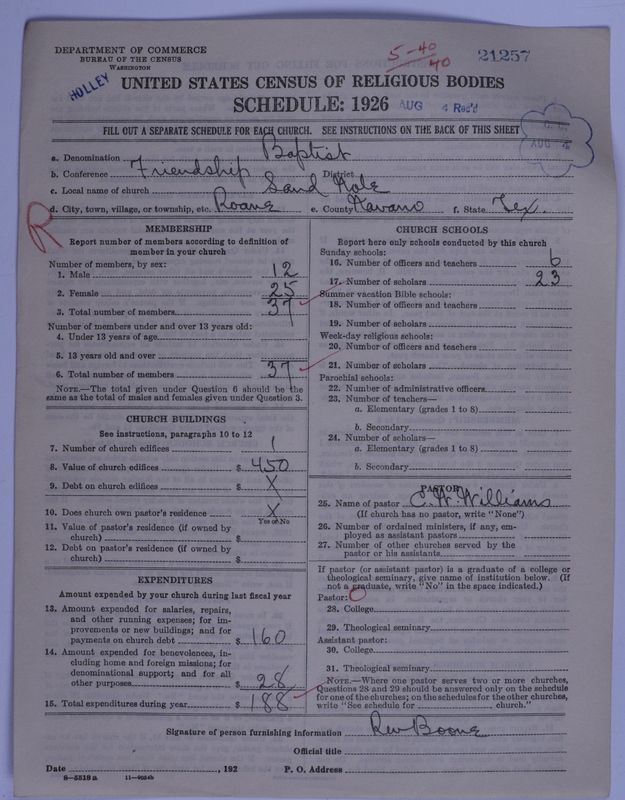 DEPARTMENT OF COMMERCE
BUREAU OF THE CENSUS
WASHINGTON
HOLLEY
5-40
40
21257
UNITED STATES CENSUS OF RELIGIOUS BODIES
SCHEDULE: 1926
AUG 4 Rec'd
FILL OUT A SEPARATE SCHEDULE FOR EACH CHURCH. SEE INSTRUCTIONS ON THE BACK OF THIS SHEET
AUG 4
a. Denomination Baptist
b. Conference Friendship District
c. Local name of church Sand Hole
d. City, town, village, or township, etc. Roane e. County Navarro f. State Tex.
R
MEMBERSHIP
Report number of members according to definition of
member in your church
Number of members, by sex:
1. Male 12
2. Female 25
3. Total number of members 37
Number of members under and over 13 years old:
4. Under 13 years of age
5. 13 years old and over
6. Total number of members 37
NOTE.—The total given under Question 6 should be the
same as the total of males and females given under Question 3.
CHURCH BUILDINGS
See instructions, paragraphs 10 to 12
7. Number of church edifices 1
8. Value of church edifices $ 450
9. Debt on church edifices $ X
10. Does church own pastor's residence X
Yes or No
11. Value of pastor's residence (if owned by
church) $
12. Debt on pastor's residence (if owned by
church) $
EXPENDITURES
Amount expended by your church during last fiscal year
13. Amount expended for salaries, repairs,
and other running expenses; for im-
provements or new buildings; and for
payments on church debt $ 160
14. Amount expended for benevolences, in-
cluding home and foreign missions; for
denominational support; and for all
other purposes $ 28
15. Total expenditures during year $ 188
CHURCH SCHOOLS
Report here only schools conducted by this church
Sunday schools:
16. Number of officers and teachers 6
17. Number of scholars 23
Summer vacation Bible schools:
18. Number of officers and teachers
19. Number of scholars
Week-day religious schools:
20. Number of officers and teachers
21. Number of scholars
Parochial schools:
22. Number of administrative officers
23. Number of teachers—
a. Elementary (grades 1 to 8)
b. Secondary
24. Number of scholars—
a. Elementary (grades 1 to 8)
b. Secondary
PASTOR
25. Name of pastor C. W. Williams
(If church has no pastor, write "None")
26. Number of ordained ministers, if any, em-
ployed as assistant pastors
27. Number of other churches served by the
pastor or his assistants
If pastor (or assistant pastor) is a graduate of a college or
theological seminary, give name of institution below. (If
not a graduate, write "No" in the space indicated.)
Pastor: O
28. College
29. Theological seminary
Assistant pastor:
30. College
31. Theological seminary
NOTE.—Where one pastor serves two or more churches,
Questions 28 and 29 should be answered only on the schedule
for one of the churches; on the schedules for the other churches,
write "See schedule for church."
Signature of person furnishing information Rev Boone
Official title
Date , 192 P. O. Address
8-5518 a 11-9024b